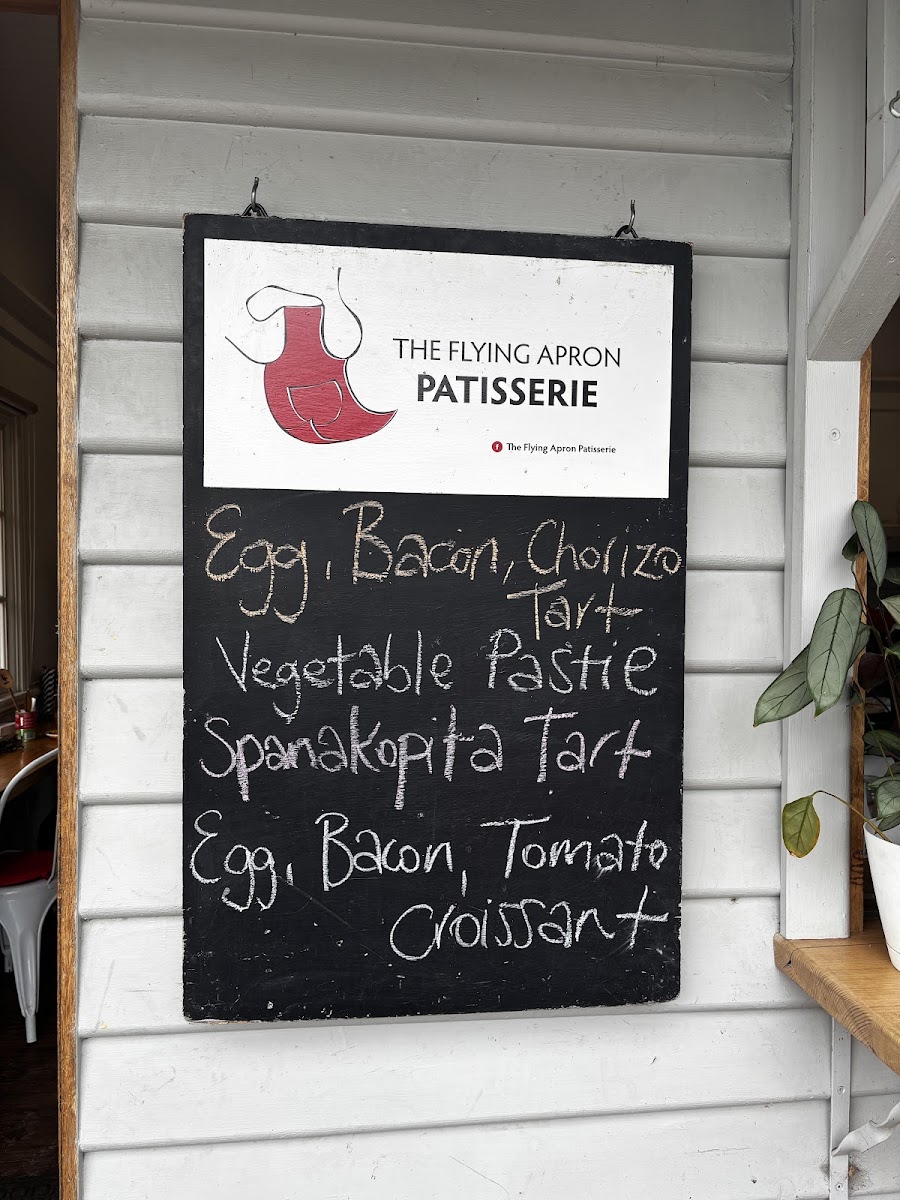 THE FLYING APRON
PATISSERIE
f The Flying Apron Patisserie
Egg, Bacon, Chorizo
Tart
Vegetable Pastie
Spanakopita Tart
Egg, Bacon, Tomato
Croissant